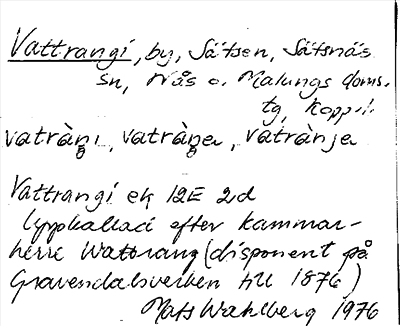 Vattrangi, by, Sätsen, Sätsnäs
sn, Nås o. Malungs doms.
tg, Koppli.
vatràŋı, vatràŋea, vatrànje
Vattrangi ek 12E 2d
Uppkallad efter kammar-
herre Wattrang (disponent på
Gravendalsverken till 1876)
Mats Wahlberg 1976